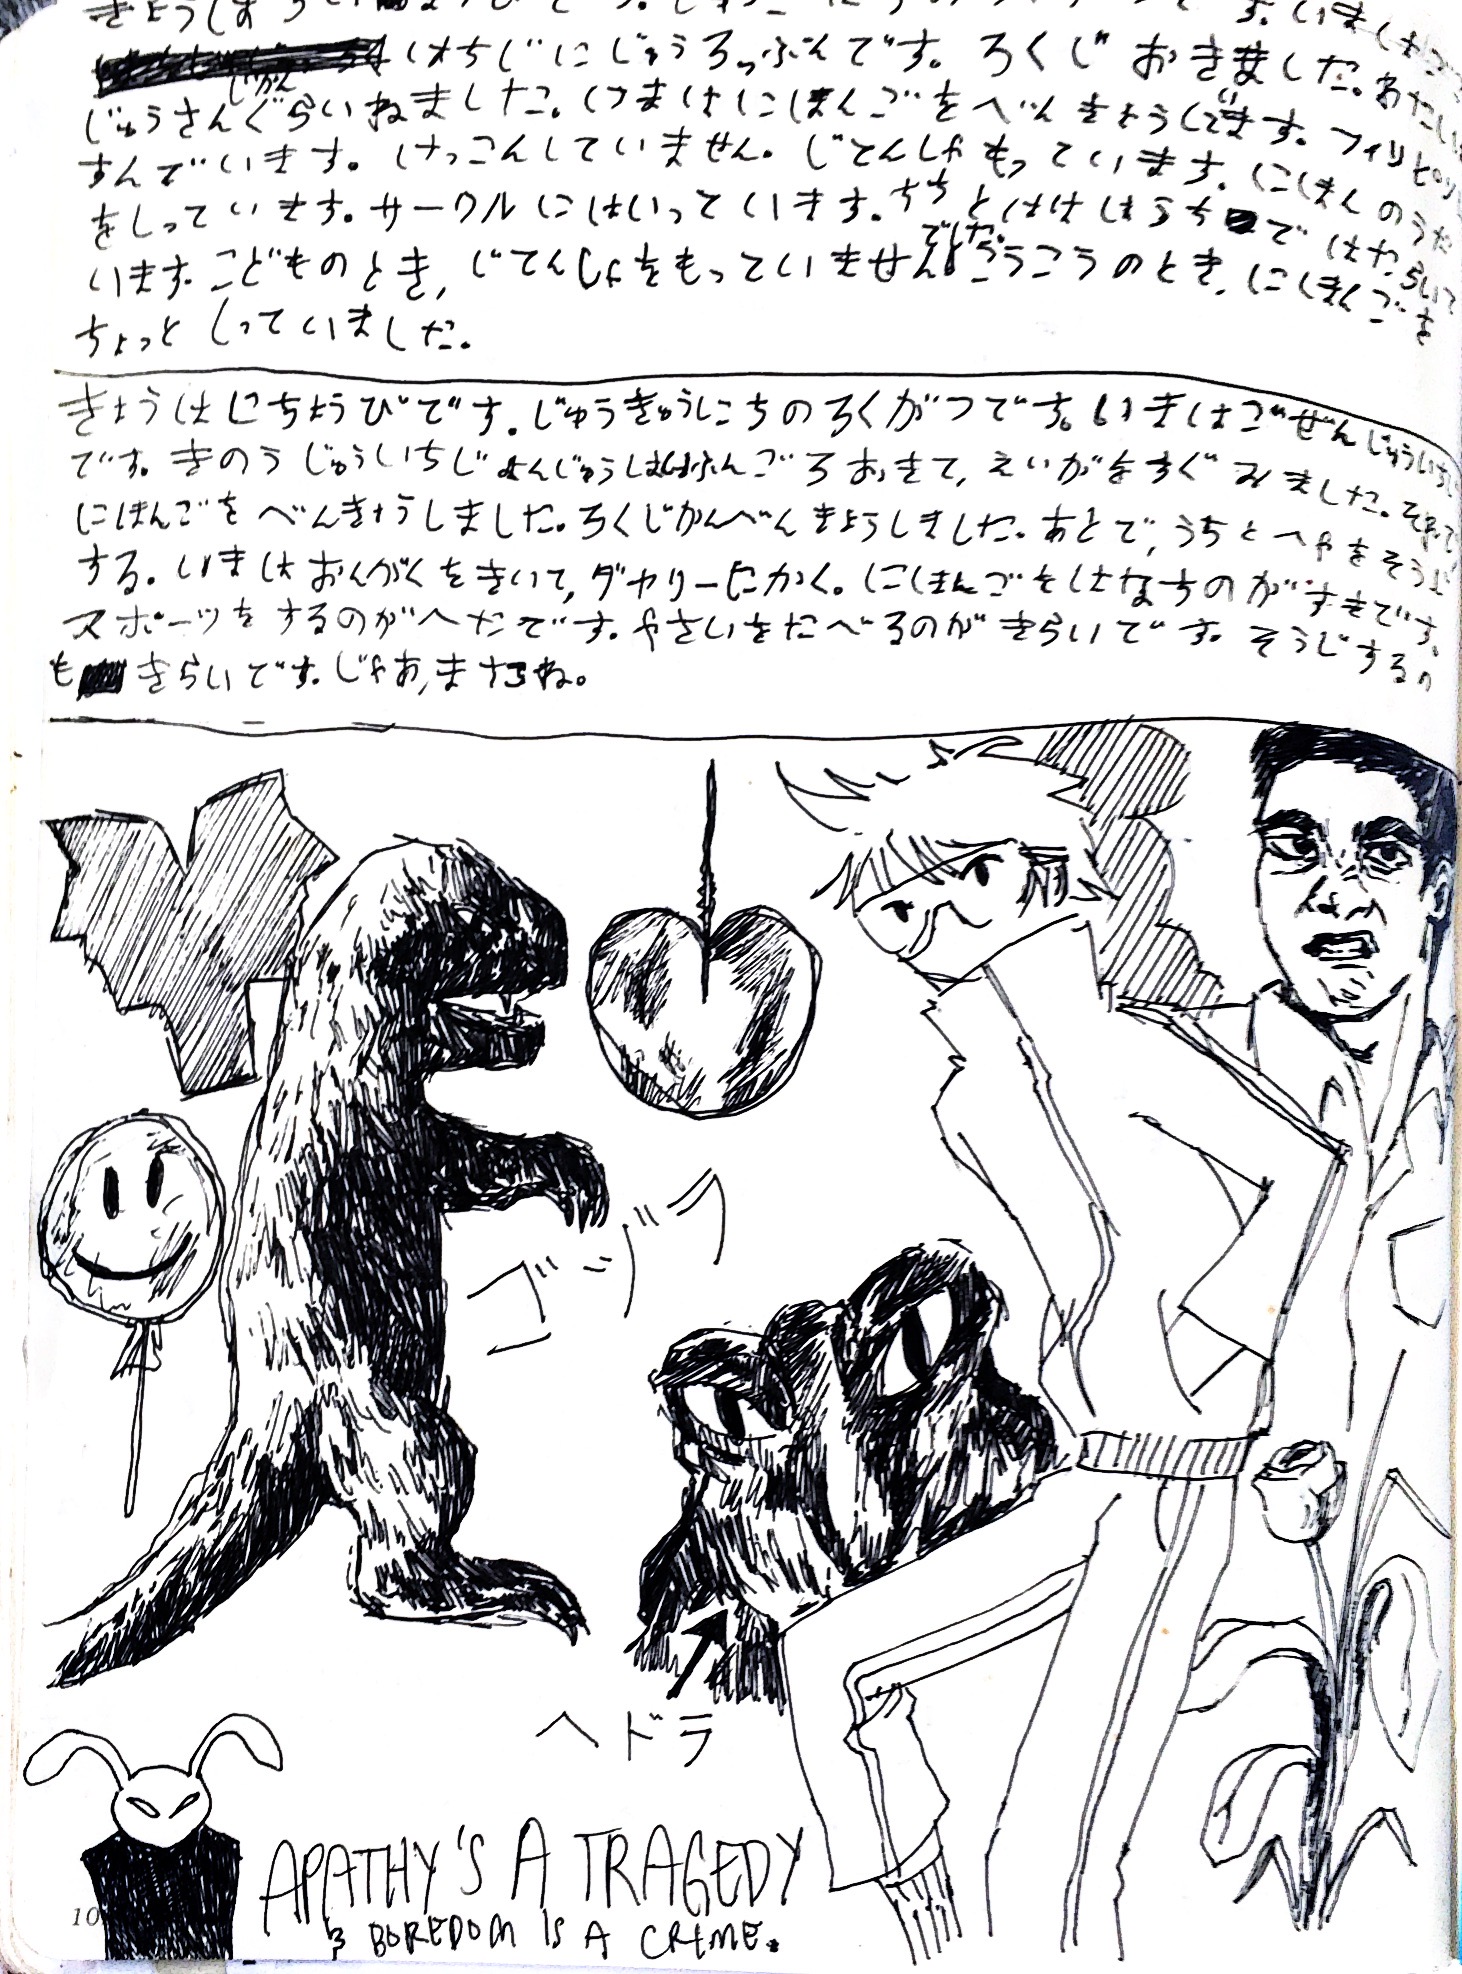 いちじにじゅうろっぷんです。ろくじおきました。わたしは
じゅうさんじかんぐらいねました。いまはにほんごをべんきょうしています。フィリピン
すんでいます。けっこんしていません。じてんしゃもっています。にほんのうた
をしっています。サークルにはいっています。ちちとはははうちではたらいて
います。こどものとき、じてんしゃをもっていませんでした。こうこうのとき、にほんごを
ちょっとしっていました。
きょうはにちようびです。じゅうきゅうにちのろくがつです。いまはごぜんじゅういちじ
です。きのうじゅういちじよんじゅうはっぷんごろおきて、えいがをすぐみました。それで
にほんごをべんきょうしました。ろくじかんべんきょうしました。あとで、うちとへやをそうじ
する。いまはおんがくをきいて、ダヤリーにかく。にほんごをはなすのがすきです。
スポーツをするのがへたです。やさいをたべるのがきらいです。そうじするの
もきらいです。じゃあ、またね。
ゴジラ
ヘドラ
APATHY'S A TRAGEDY
& BOREDOM IS A CRIME.
10